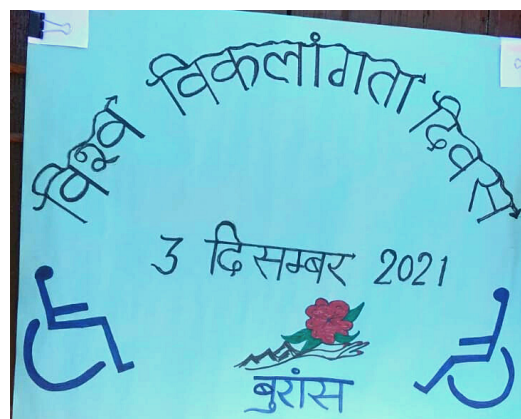 विश्व विकलांगता दिवस
3 दिसम्बर 2021
बुरांस